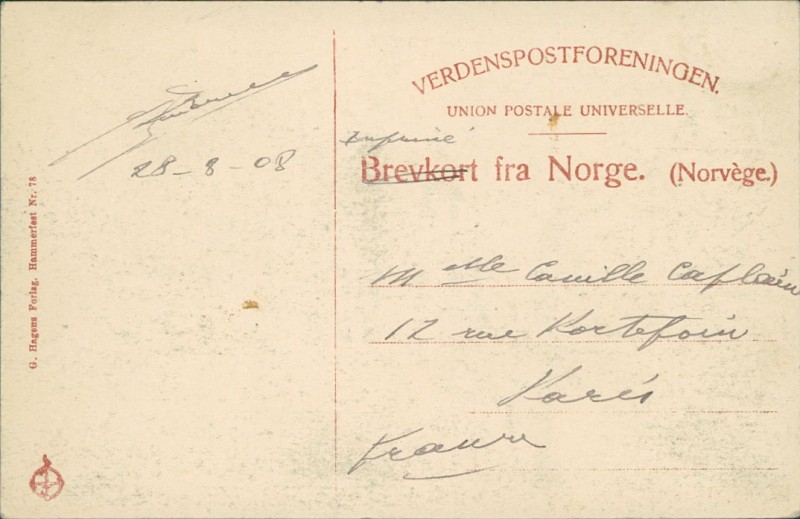 VERDENSPOSTFORENINGEN.
UNION POSTALE UNIVERSELLE.
Imprimé
Brevkort fra Norge. (Norvège.)
28-8-08
Mlle Camille Caplain
12 rue Portefoin
Paris
France
G. Hagens Forlag. Hammerfest Nr. 78